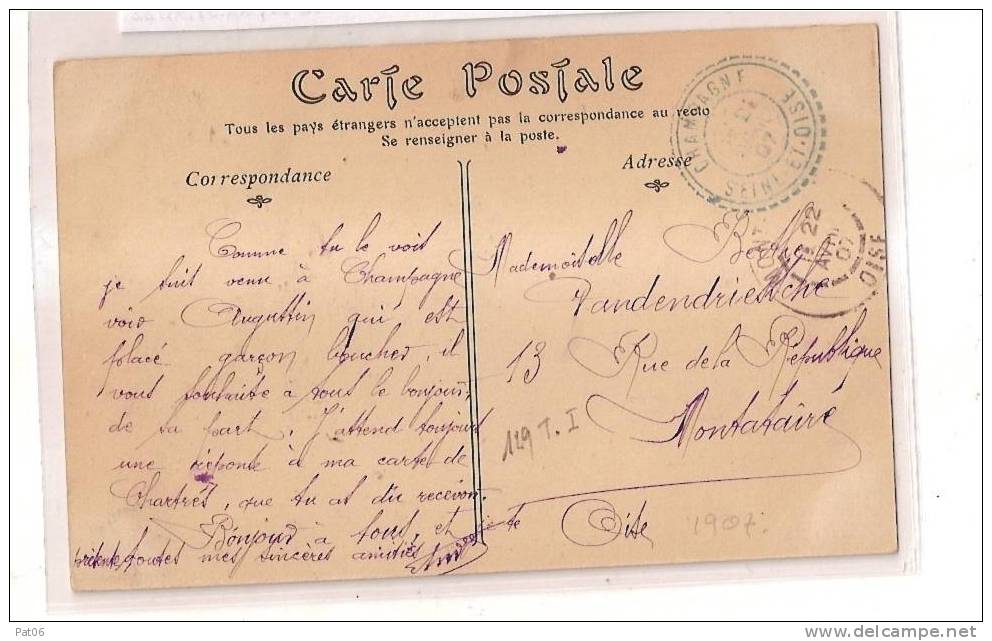 Carte Postale
Tous les pays étrangers n'acceptent pas la correspondance au recto
Se renseigner à la poste.
Correspondance
Adresse
CHAMPAGNE
SEINE-ET-OISE
07
22
AVRIL
07
OISE
Comme tu le voit
je suit venu à Champagne
voir Augustin qui est
placé garçon boucher, il
vous souhaite à tous le bonjour
de sa part. J'attend toujours
une réponse à ma carte de
Chartres, que tu as dû recevoir.
Bonjour à tous, et
présente toutes mes sincères amitiés
Mademoiselle Berthe
Vandendriessche
13 Rue de la République
Montataire
Oise
129 T. I
1907.
Pat06
delcampe.net